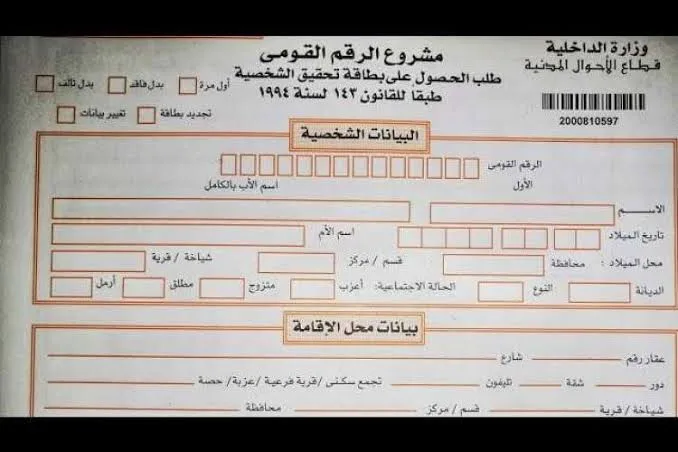 وزارة الداخلية
قطاع الأحوال المدنية
2000810597
مشروع الرقم القومى
طلب الحصول على بطاقة تحقيق الشخصية
طبقا للقانون ١٤٣ لسنة ١٩٩٤
أول مرة بدل فاقد بدل تالف
تجديد بطاقة تغيير بيانات
البيانات الشخصية
الرقم القومى
الأول اسم الأب بالكامل
الاســـم
تاريخ الميلاد اسم الأم
محل الميلاد : محافظة قسم / مركز شياخة / قرية
الديانة النوع الحالة الاجتماعية: أعزب متزوج مطلق أرمل
بيانات محل الإقامة
عقار رقم شارع
دور شقة تليفون تجمع سكنى /قرية فرعية /عزبة/ حصة
شياخة / قرية قسم / مركز محافظة